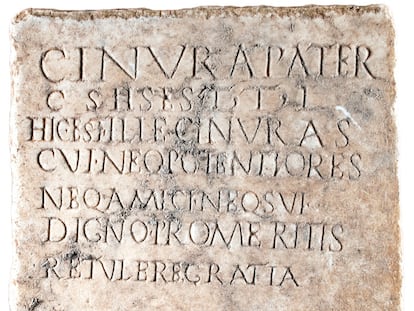 CINVRA PATER
C S H S E S T T L
HIC EST ILLE CINVRA S
CVI NEQ POTENTIORES
NEQ AMICI NEQ SVI
DIGNO PRO MERITIS
RETVLERE GRATIA